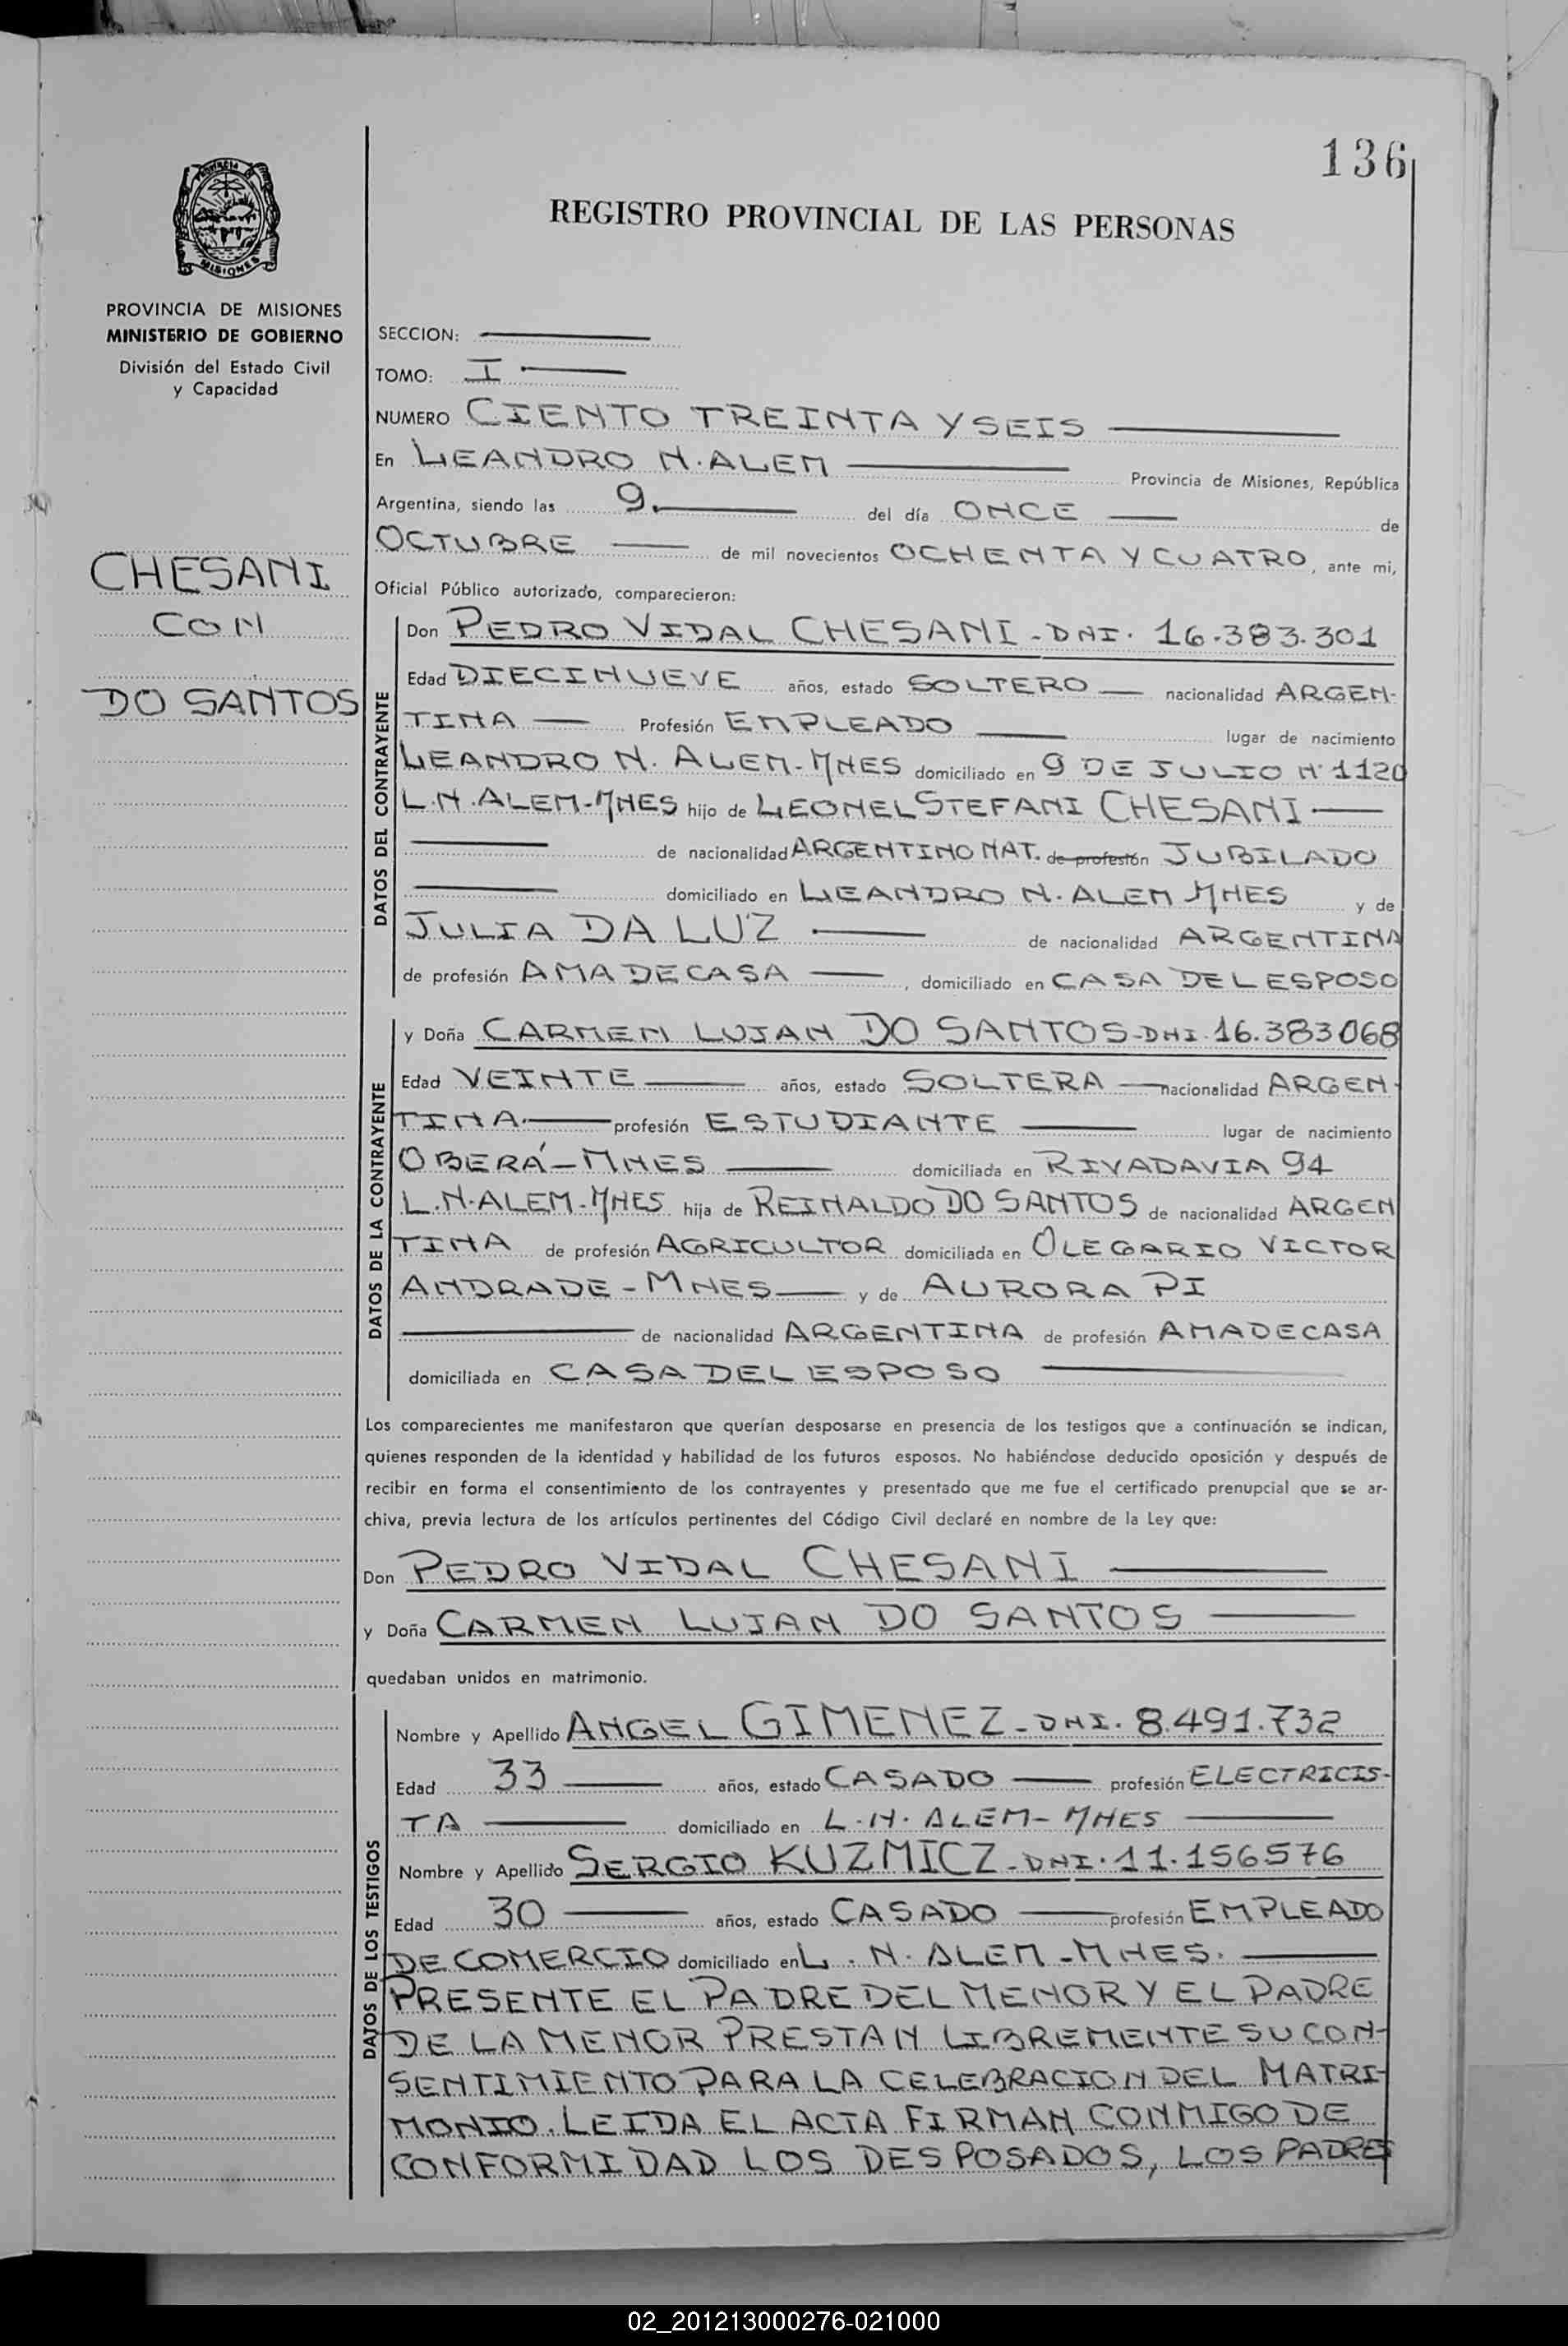 136
REGISTRO PROVINCIAL DE LAS PERSONAS
PROVINCIA DE MISIONES
MINISTERIO DE GOBIERNO
División del Estado Civil
y Capacidad
CHESANI
CON
DO SANTOS
SECCION:
TOMO: I
NUMERO CIENTO TREINTA Y SEIS
En LEANDRO N. ALEM Provincia de Misiones, República
Argentina, siendo las 9. del día ONCE de
OCTUBRE de mil novecientos OCHENTA Y CUATRO, ante mi,
Oficial Público autorizado, comparecieron:
DATOS DEL CONTRAYENTE
Don PEDRO VIDAL CHESANI - DNI. 16.383.301
Edad DIECINUEVE años, estado SOLTERO nacionalidad ARGEN-
TINA Profesión EMPLEADO lugar de nacimiento
LEANDRO N. ALEM - MNES domiciliado en 9 DE JULIO Nº 1120
L.N. ALEM - MNES hijo de LEONEL STEFANI CHESANI
de nacionalidad ARGENTINO NAT. de profesión JUBILADO
domiciliado en LEANDRO N. ALEM MNES y de
JULIA DA LUZ de nacionalidad ARGENTINA
de profesión AMA DE CASA, domiciliado en CASA DEL ESPOSO
DATOS DE LA CONTRAYENTE
y Doña CARMEN LUJAN DO SANTOS - DNI. 16.383068
Edad VEINTE años, estado SOLTERA nacionalidad ARGEN-
TINA. profesión ESTUDIANTE lugar de nacimiento
OBERÁ - MNES domiciliada en RIVADAVIA 94
L.N. ALEM - MNES hija de REINALDO DO SANTOS de nacionalidad ARGEN
TINA de profesión AGRICULTOR domiciliada en OLEGARIO VICTOR
ANDRADE - MNES y de AURORA PI
de nacionalidad ARGENTINA de profesión AMA DE CASA
domiciliada en CASA DEL ESPOSO
Los comparecientes me manifestaron que querían desposarse en presencia de los testigos que a continuación se indican,
quienes responden de la identidad y habilidad de los futuros esposos. No habiéndose deducido oposición y después de
recibir en forma el consentimiento de los contrayentes y presentado que me fue el certificado prenupcial que se ar-
chiva, previa lectura de los artículos pertinentes del Código Civil declaré en nombre de la Ley que:
Don PEDRO VIDAL CHESANI
y Doña CARMEN LUJAN DO SANTOS
quedaban unidos en matrimonio.
DATOS DE LOS TESTIGOS
Nombre y Apellido ANGEL GIMENEZ - DNI. 8.491.732
Edad 33 años, estado CASADO profesión ELECTRICIS-
TA domiciliado en L.N. ALEM - MNES
Nombre y Apellido SERGIO KUZMICZ - DNI. 11.156576
Edad 30 años, estado CASADO profesión EMPLEADO
DE COMERCIO domiciliado en L. N. ALEM - MNES.
PRESENTE EL PADRE DEL MENOR Y EL PADRE
DE LA MENOR PRESTAN LIBREMENTE SU CON-
SENTIMIENTO PARA LA CELEBRACION DEL MATRI-
MONIO. LEIDA EL ACTA FIRMAN CONMIGO DE
CONFORMIDAD LOS DESPOSADOS, LOS PADRES
02_201213000276-021000